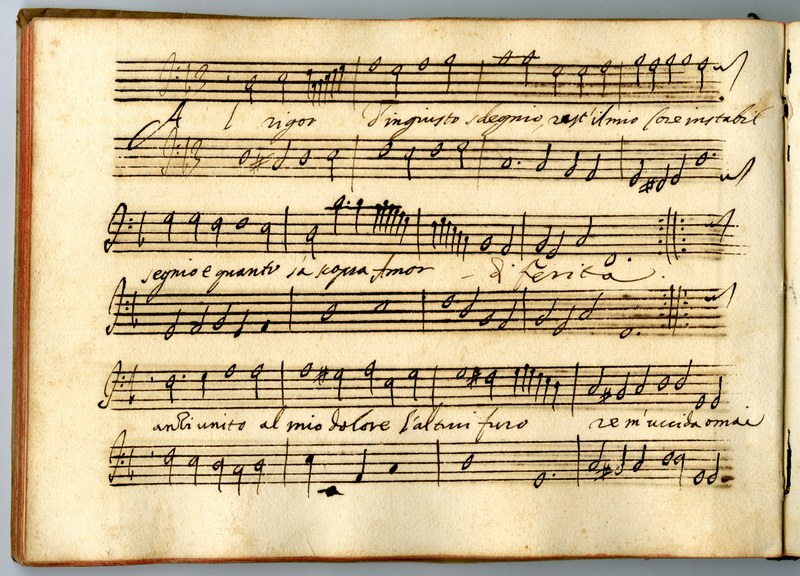 Al rigor d'ingiusto sdegnio, rest'il mio Core instabil
segnio e quanto sa scoppia Amor di ferita.
unito al mio dolore l'altrui furo re m'uccida omai